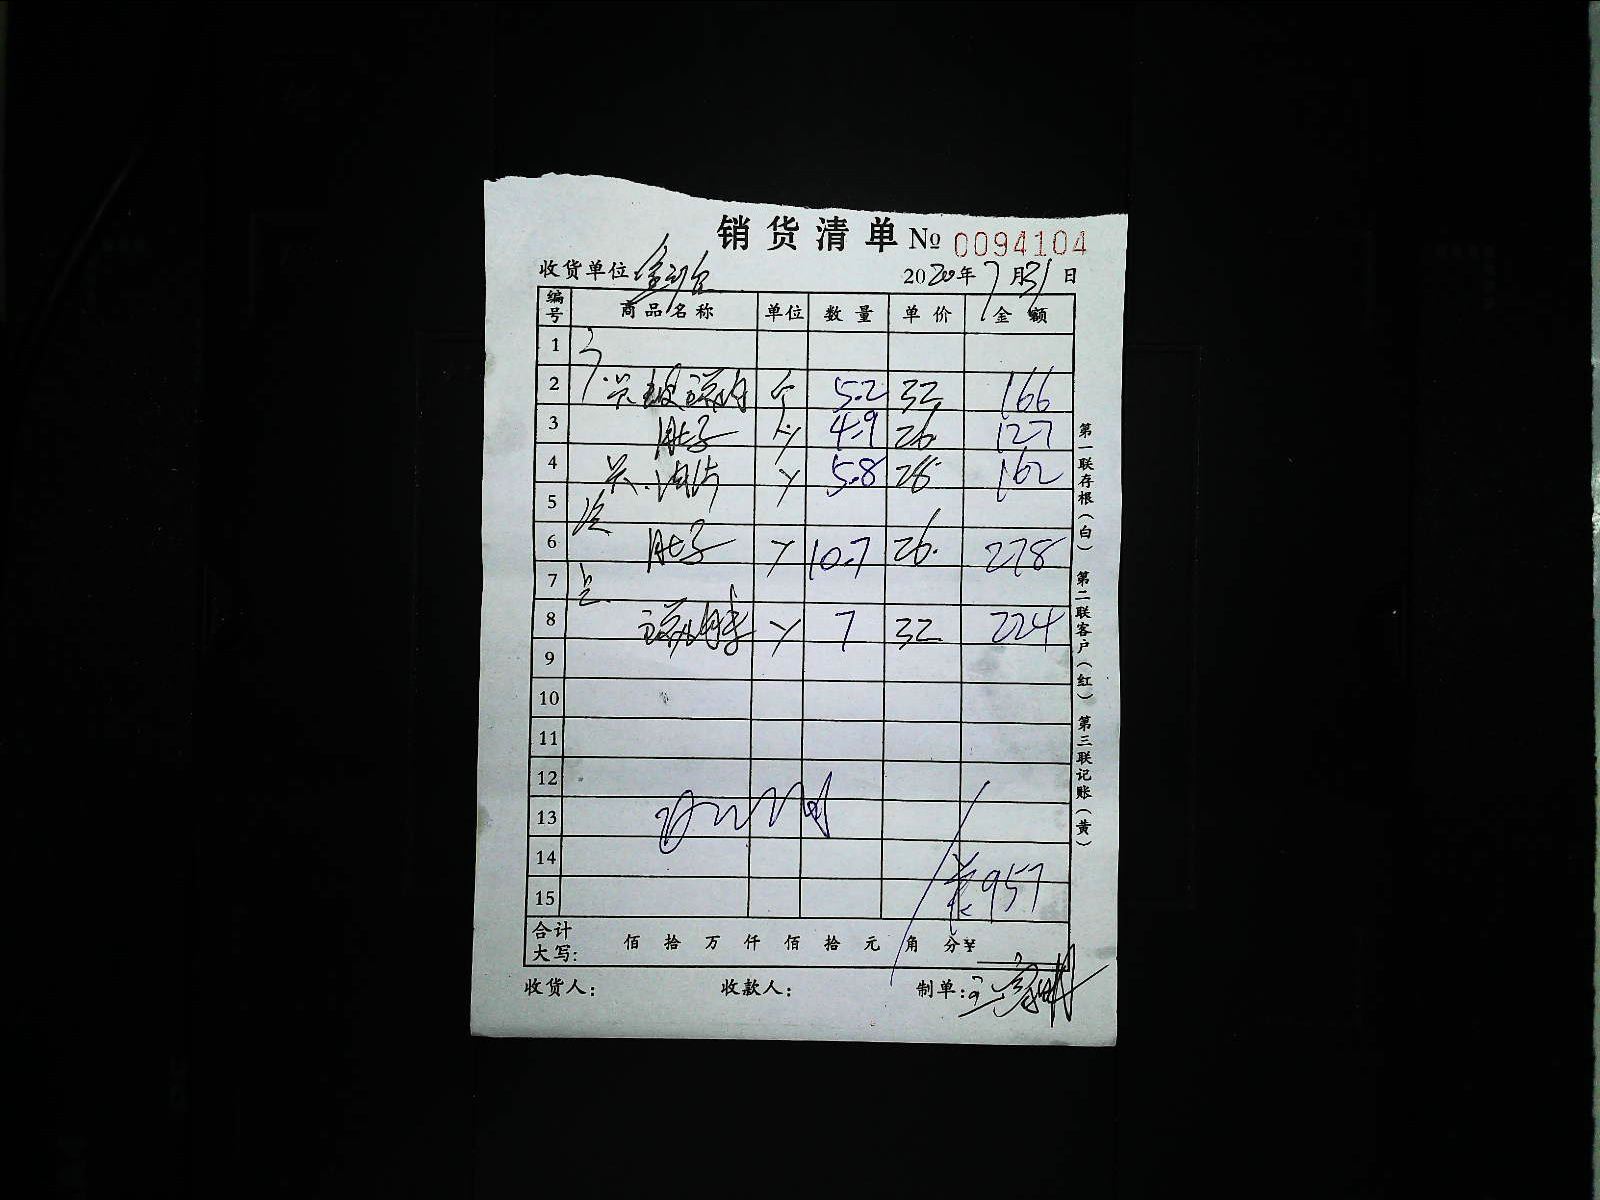 销货清单 № 0094104
收货单位 2020年7月31日
编号 商品名称 单位 数量 单价 金额
1
2 5.2 32 166
3 肚子 4.9 26 127
4 5.8 28 162
5
6 肚子 10.7 26 278
7
8 7 32 224
9
10
11
12
13
14
957
15
合计大写: 佰 拾 万 仟 佰 拾 元 角 分¥
收货人: 收款人: 制单:
第一联存根(白) 第二联客户(红) 第三联记账(黄)